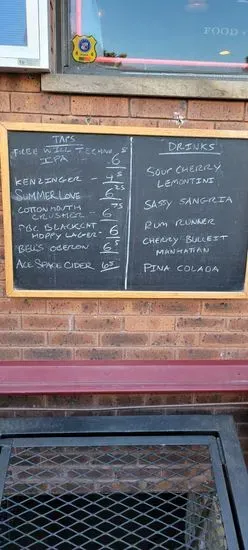 FOOD
TAPS
FREE WILL TECHNO
IPA 6
KENZINGER -
SUMMER LOVE 6
COTTONMOUTH
CRUSHER - 6
PBC BLACKCAT
HOPPY LAGER - 6
BELL'S OBERON 6
ACE SPACE CIDER
DRINKS
SOUR CHERRY
LEMONTINI
SASSY SANGRIA
RUM RUNNER
CHERRY BULLEIT
MANHATTAN
PINA COLADA